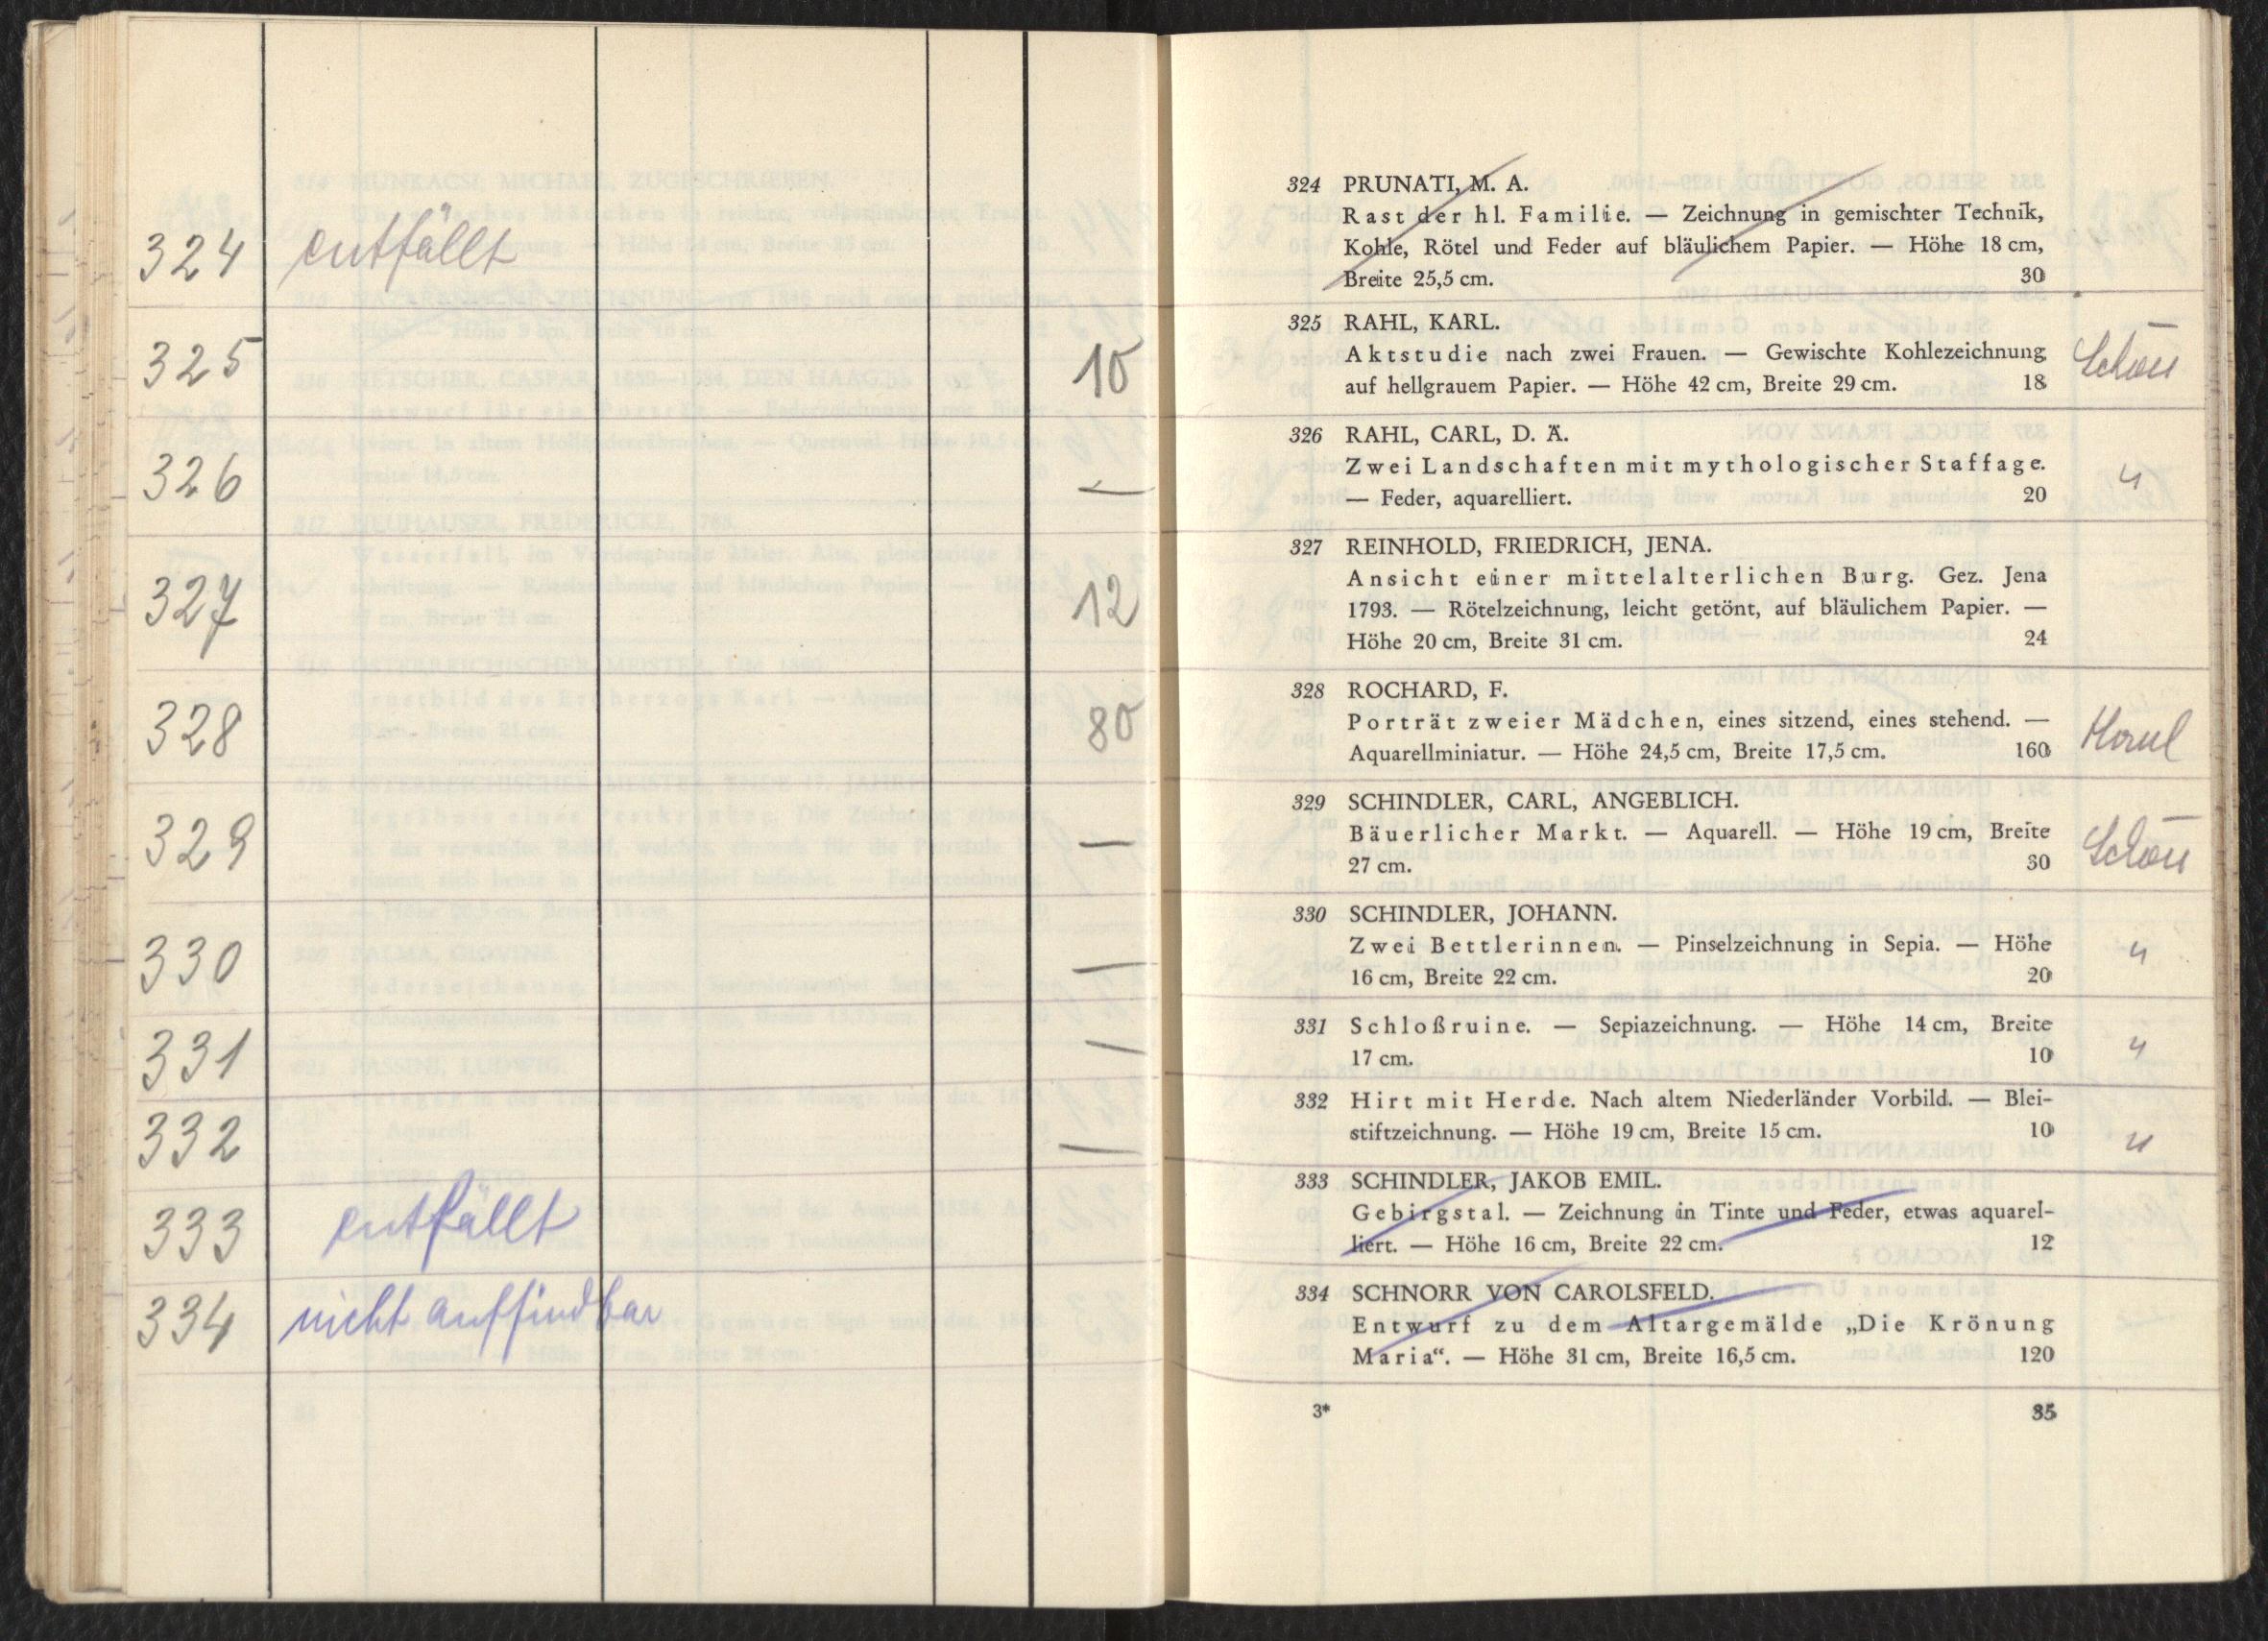 324 entfällt
325 10
326 —
327 12
328 80
329 —
330 —
331 —
332 —
333 entfällt
334 nicht auffindbar
324 PRUNATI, M. A.
Rast der hl. Familie. — Zeichnung in gemischter Technik,
Kohle, Rötel und Feder auf bläulichem Papier. — Höhe 18 cm,
Breite 25,5 cm. 30
325 RAHL, KARL.
Aktstudie nach zwei Frauen. — Gewischte Kohlezeichnung Schön
auf hellgrauem Papier. — Höhe 42 cm, Breite 29 cm. 18
326 RAHL, CARL, D. Ä.
Zwei Landschaften mit mythologischer Staffage. "
— Feder, aquarelliert. 20
327 REINHOLD, FRIEDRICH, JENA.
Ansicht einer mittelalterlichen Burg. Gez. Jena
1793. — Rötelzeichnung, leicht getönt, auf bläulichem Papier. —
Höhe 20 cm, Breite 31 cm. 24
328 ROCHARD, F.
Porträt zweier Mädchen, eines sitzend, eines stehend. —
Aquarellminiatur. — Höhe 24,5 cm, Breite 17,5 cm. 160
329 SCHINDLER, CARL, ANGEBLICH.
Bäuerlicher Markt. — Aquarell. — Höhe 19 cm, Breite Schön
27 cm. 30
330 SCHINDLER, JOHANN.
Zwei Bettlerinnen. — Pinselzeichnung in Sepia. — Höhe "
16 cm, Breite 22 cm. 20
331 Schloßruine. — Sepiazeichnung. — Höhe 14 cm, Breite
17 cm. 10 "
332 Hirt mit Herde. Nach altem Niederländer Vorbild. — Blei-
stiftzeichnung. — Höhe 19 cm, Breite 15 cm. 10 "
333 SCHINDLER, JAKOB EMIL.
Gebirgstal. — Zeichnung in Tinte und Feder, etwas aquarel-
liert. — Höhe 16 cm, Breite 22 cm. 12
334 SCHNORR VON CAROLSFELD.
Entwurf zu dem Altargemälde „Die Krönung
Maria“. — Höhe 31 cm, Breite 16,5 cm. 120
3* 35